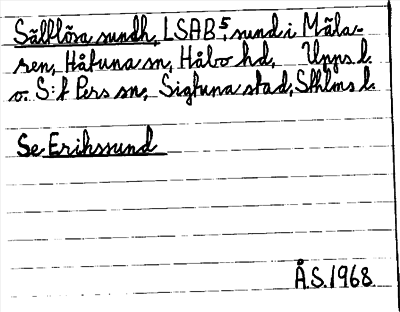 Sälflösa sundh, LSAB 5, sund i Mäla-
ren, Håtuna sn, Håbo hd, Upps l.
o. S:t Pers sn, Sigtuna stad, Sthlms l.
Se Erikssund
Å.S. 1968